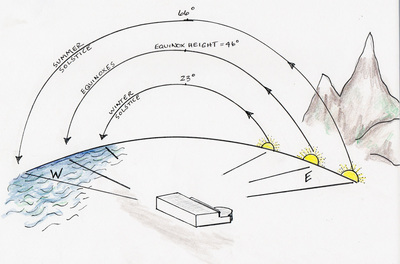 66°
SUMMER
SOLSTICE
EQUINOX HEIGHT = 46°
EQUINOXES
23°
WINTER
SOLSTICE
W
E